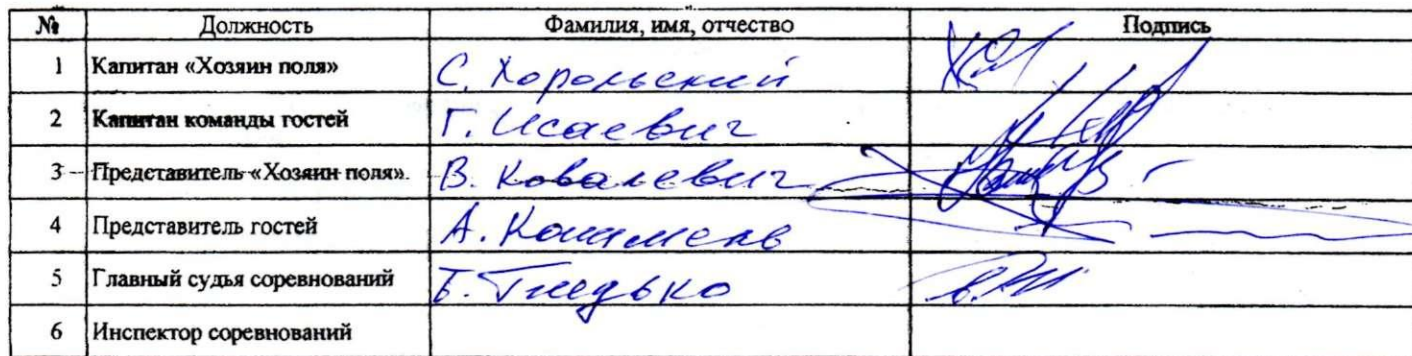 № Должность Фамилия, имя, отчество Подпись
1 Капитан «Хозяин поля» С. Хорольский
2 Капитан команды гостей Г. Исаевич
3 Представитель «Хозяин поля» В. Ковалевич
4 Представитель гостей А.
5 Главный судья соревнований Гнедько
6 Инспектор соревнований